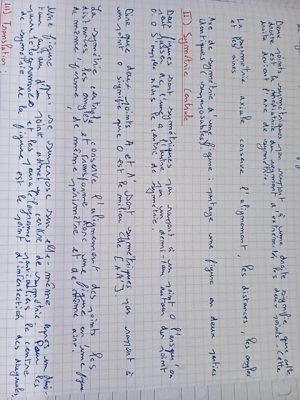 Deux points symétriques par rapport à une droite signifie que cette
droite est la médiatrice du segment d'extrémité les deux points. Cette
droite devient l'axe de symétrie
La symétrie axiale conserve l'alignement, les distances, les angles
et les aires.
Axe de symétrie d'une figure : partage une figure en deux parties
identiques et superposables
II) Symétrie centrale
Deux figures sont symétriques par rapport à un point O lorsqu'on
passe de l'une à l'autre un demi-tour autour du point
O. O s'appelle alors le de symétrie.
Dire que deux points A et A' sont symétriques par rapport à
un point O signifie que O est le milieu de [AA']
La symétrie centrale conserve l'alignement des points, les
distances, les angles et transforme donc une figure en une figure
de même forme, de même périmètre et de même aire.
Une figure qui se superpose sur elle-même après un demi-
tour autour d'un point admet un centre de symétrie. Dans les
parallélogrammes et les parallélogrammes particuliers, le centre
de symétrie de la figure est le point d'intersection des diagonales.
III) Translation :